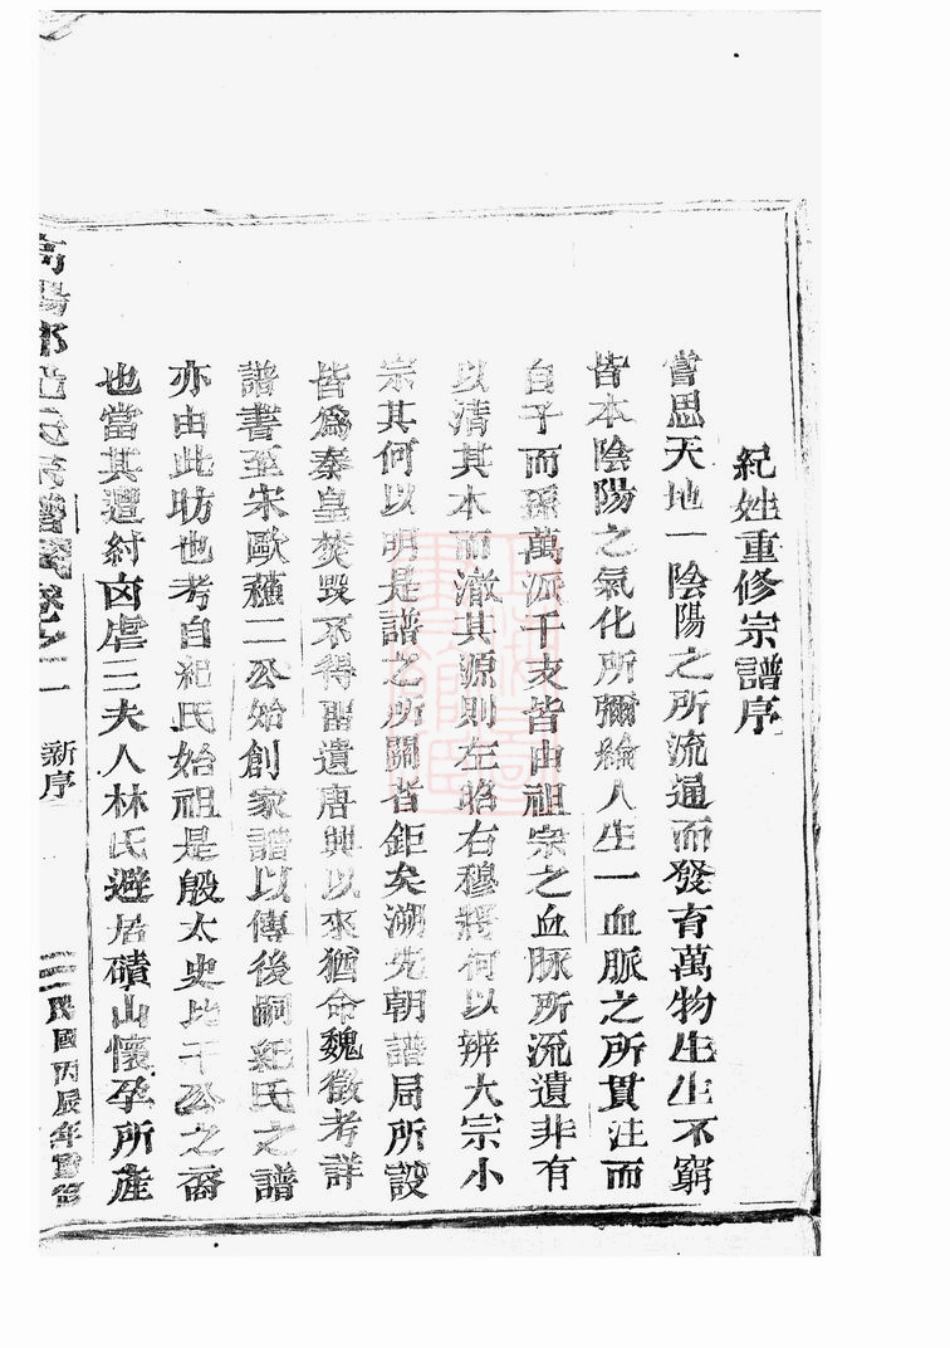 紀姓重修宗譜序
嘗思天地一陰陽之所流通而發育萬物生生不窮
皆本陰陽之氣化所彌綸人生一血脈之所貫注而
自子而孫萬派千支皆由祖宗之血脉所流遺非有
以清其本而澈其源則左昭右穆將何以辨大宗小
宗其何以明是譜之所關者鉅矣溯先朝譜局所設
皆爲秦皇焚毀不得留遺唐興以來猶命魏徵考詳
譜書至宋歐蘓二公始創家譜以傳後嗣紀氏之譜
亦由此昉也考自紀氏始祖是殷太史比干公之裔
也當其遭紂卤虐三夫人林氏避居磧山懷孕所產
高陽郡紀氏宗譜 卷之二 新序 三 民國丙辰年重修